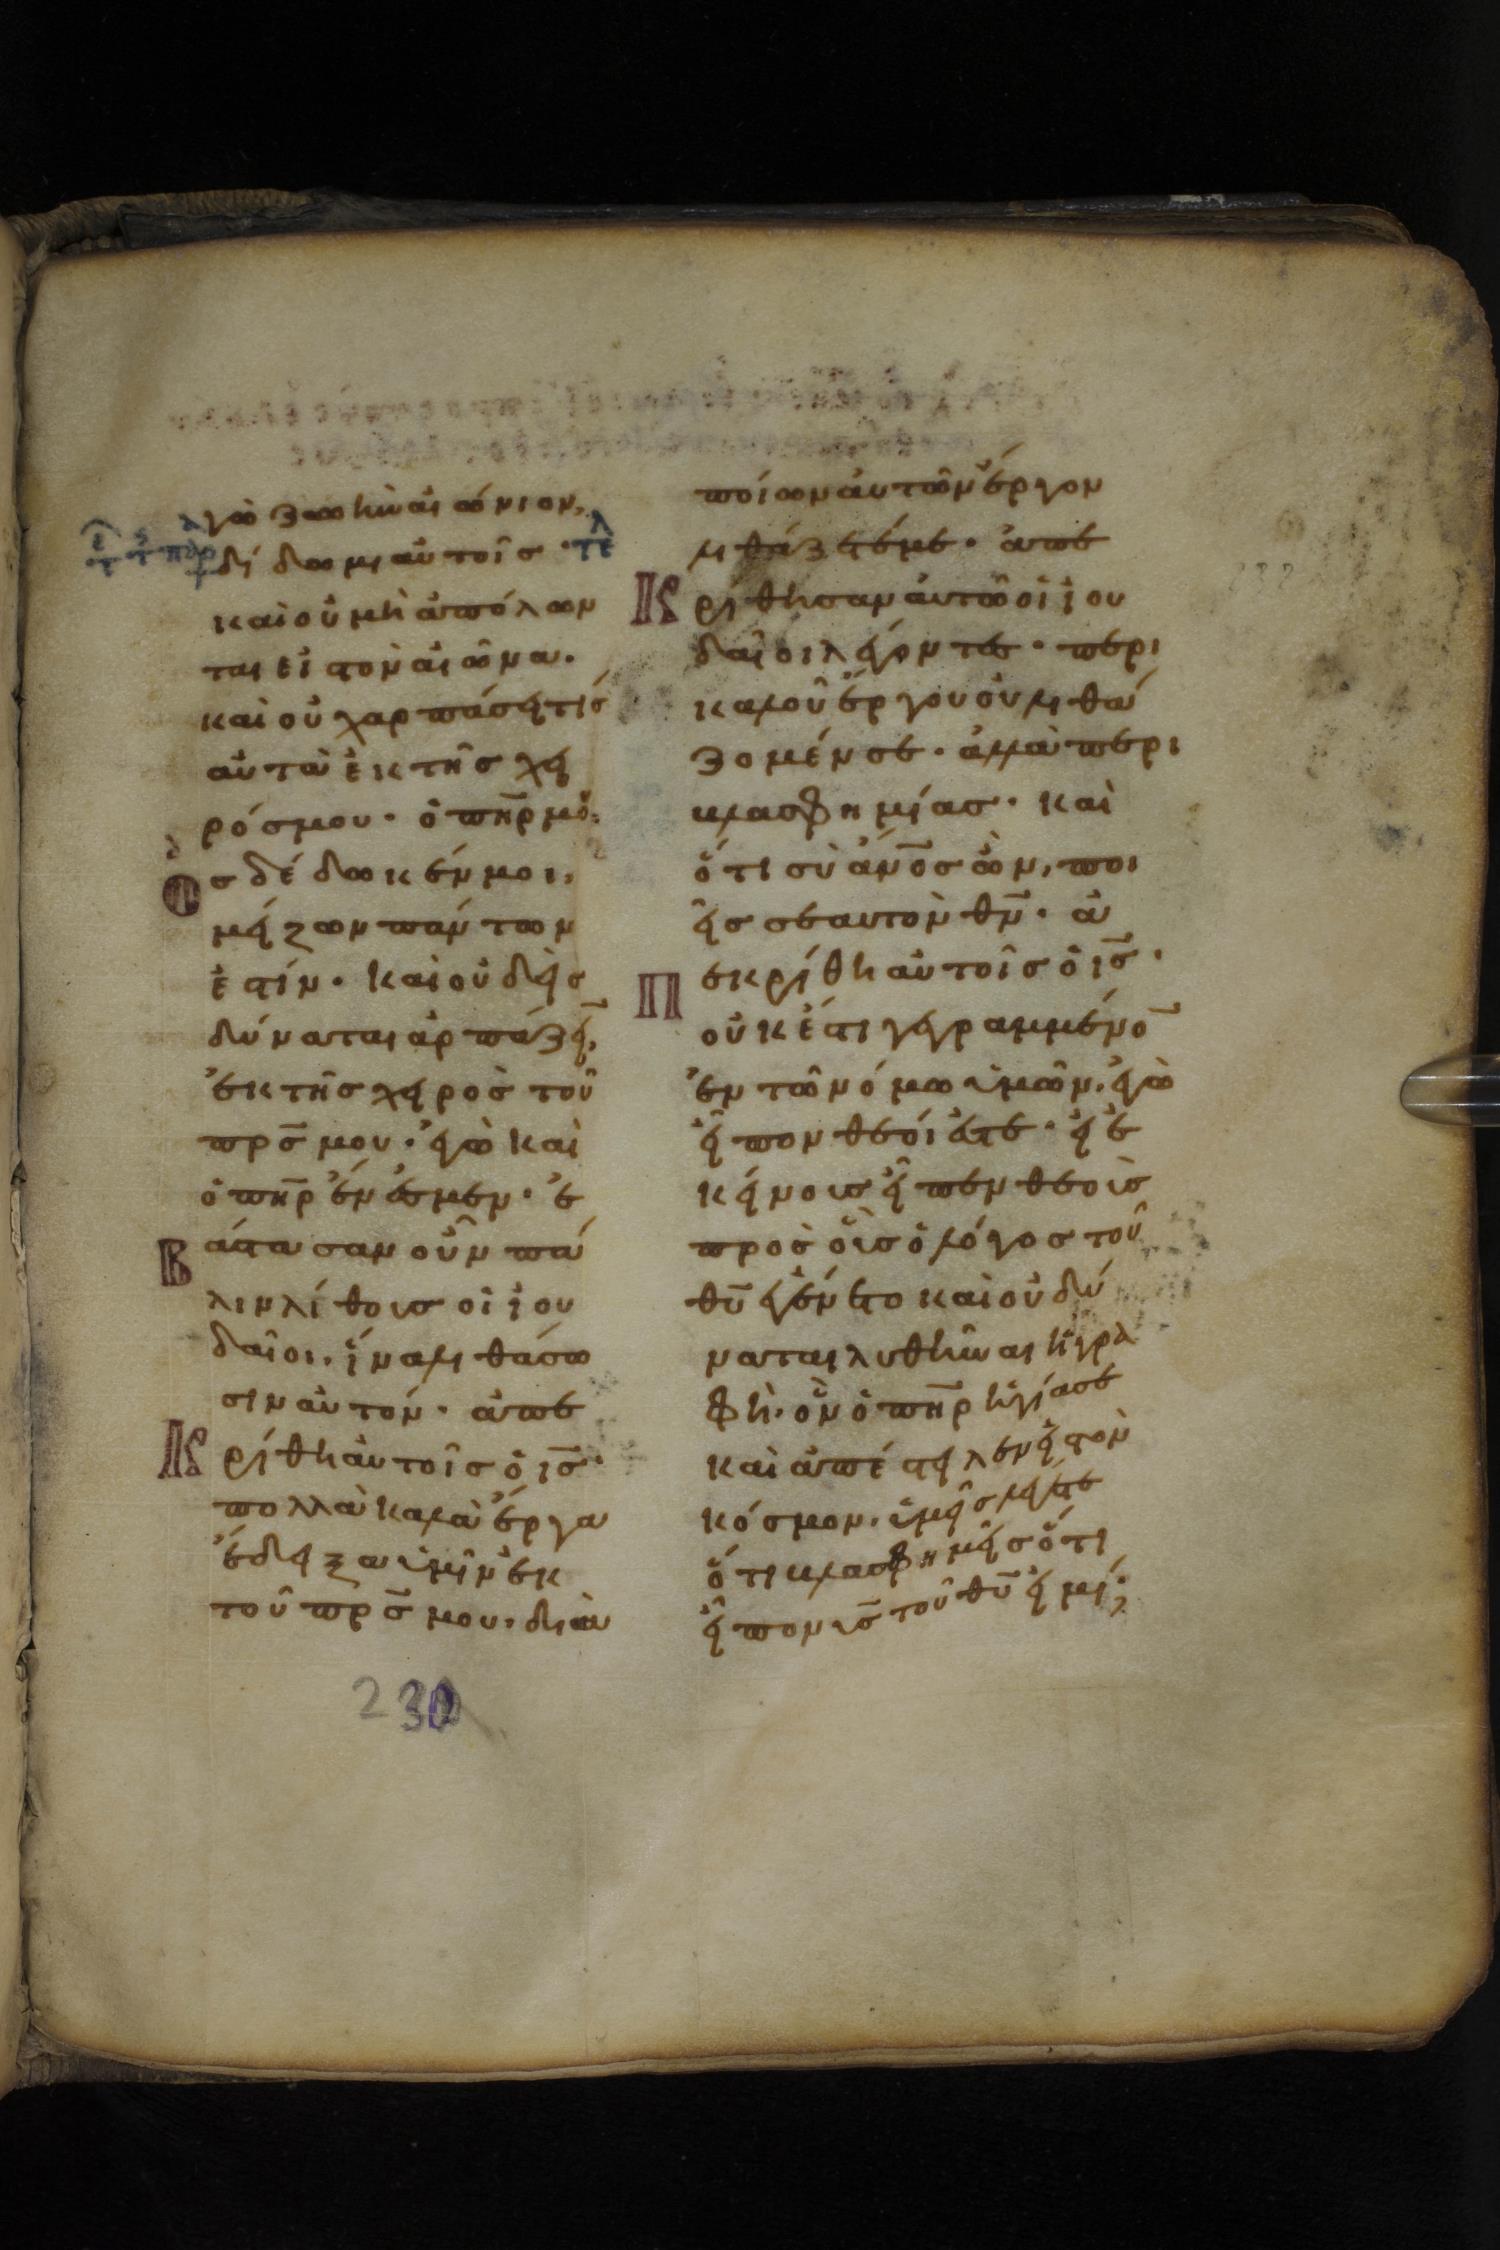 γὼ ζωὴν αἰώνιον,
δίδωμι αὐτοῖσ · τε
λ
καὶ οὐ μὴ ἀπόλων
ται εἰστὸν αἰῶνα.
καὶ οὐχ αρπάσει τίσ
αὐτὰ ἐκ τῆσ χει
ρόσ μου · ὁ πηρ μου
Οσ δέδωκέν μοι,
μείζων πάντων
ἐστίν · καὶ οὐδεὶσ
δύναται ἁρπάζειν,
ἐκ τῆσ χειροσ τοῦ
πρσ μου · ἐγὼ καὶ
ὁ πηρ ἕν ἐσμεν · ἐ
Βάστασαν οὖν πά
λιν λίθουσ οἱ ἰου
δαῖοι, ἵνα λιθάσω
σιν αὐτόν · ἀπε
Κρίθη αὐτοῖσ ὁ ισ ·
πολλὰ καλὰ ἔργα
ἔδειξα ὑμῖν ἐκ
τοῦ πρσ μου, διὰ
230
ποίων αὐτῶν ἔργον
λιθάζετέ με · ἀπε
Κρίθησαν αὐτῶ οἱ ἰου
δαῖοι λέγοντεσ · περι
καλοῦ ἔργου οὐ λιθά
ζομέν σε · ἀλλὰ περι
βλασφημίασ · καὶ
ὅτι σὺ ἀνοσ ὢν, ποι
εῖσ σεαυτὸν θν · ἀ
Πεκρίθη αὐτοῖσ ὁ ισ ·
οὐκ ἔστι γεγραμμένον
ἐν τῶ νόμω ὑμῶν, ἐγὼ
εἶπον θεοί ἐστε · εἰ ἐ
κείνουσ εἶπεν θεοὺσ
πρὸσ οὓσ ὁ λόγοσ τοῦ
θυ ἐγένετο καὶ οὐ δύ
ναται λυθῆναι ἡ γρα
φή · ὃν ὁ πηρ ἡγίασε
καὶ ἀπέστειλεν εἰστὸν
κόσμον, ὑμεῖσ λέγετε
ὅτι βλασφημεῖσ ὅτι
εἶπον υσ τοῦ θυ εἰμί;